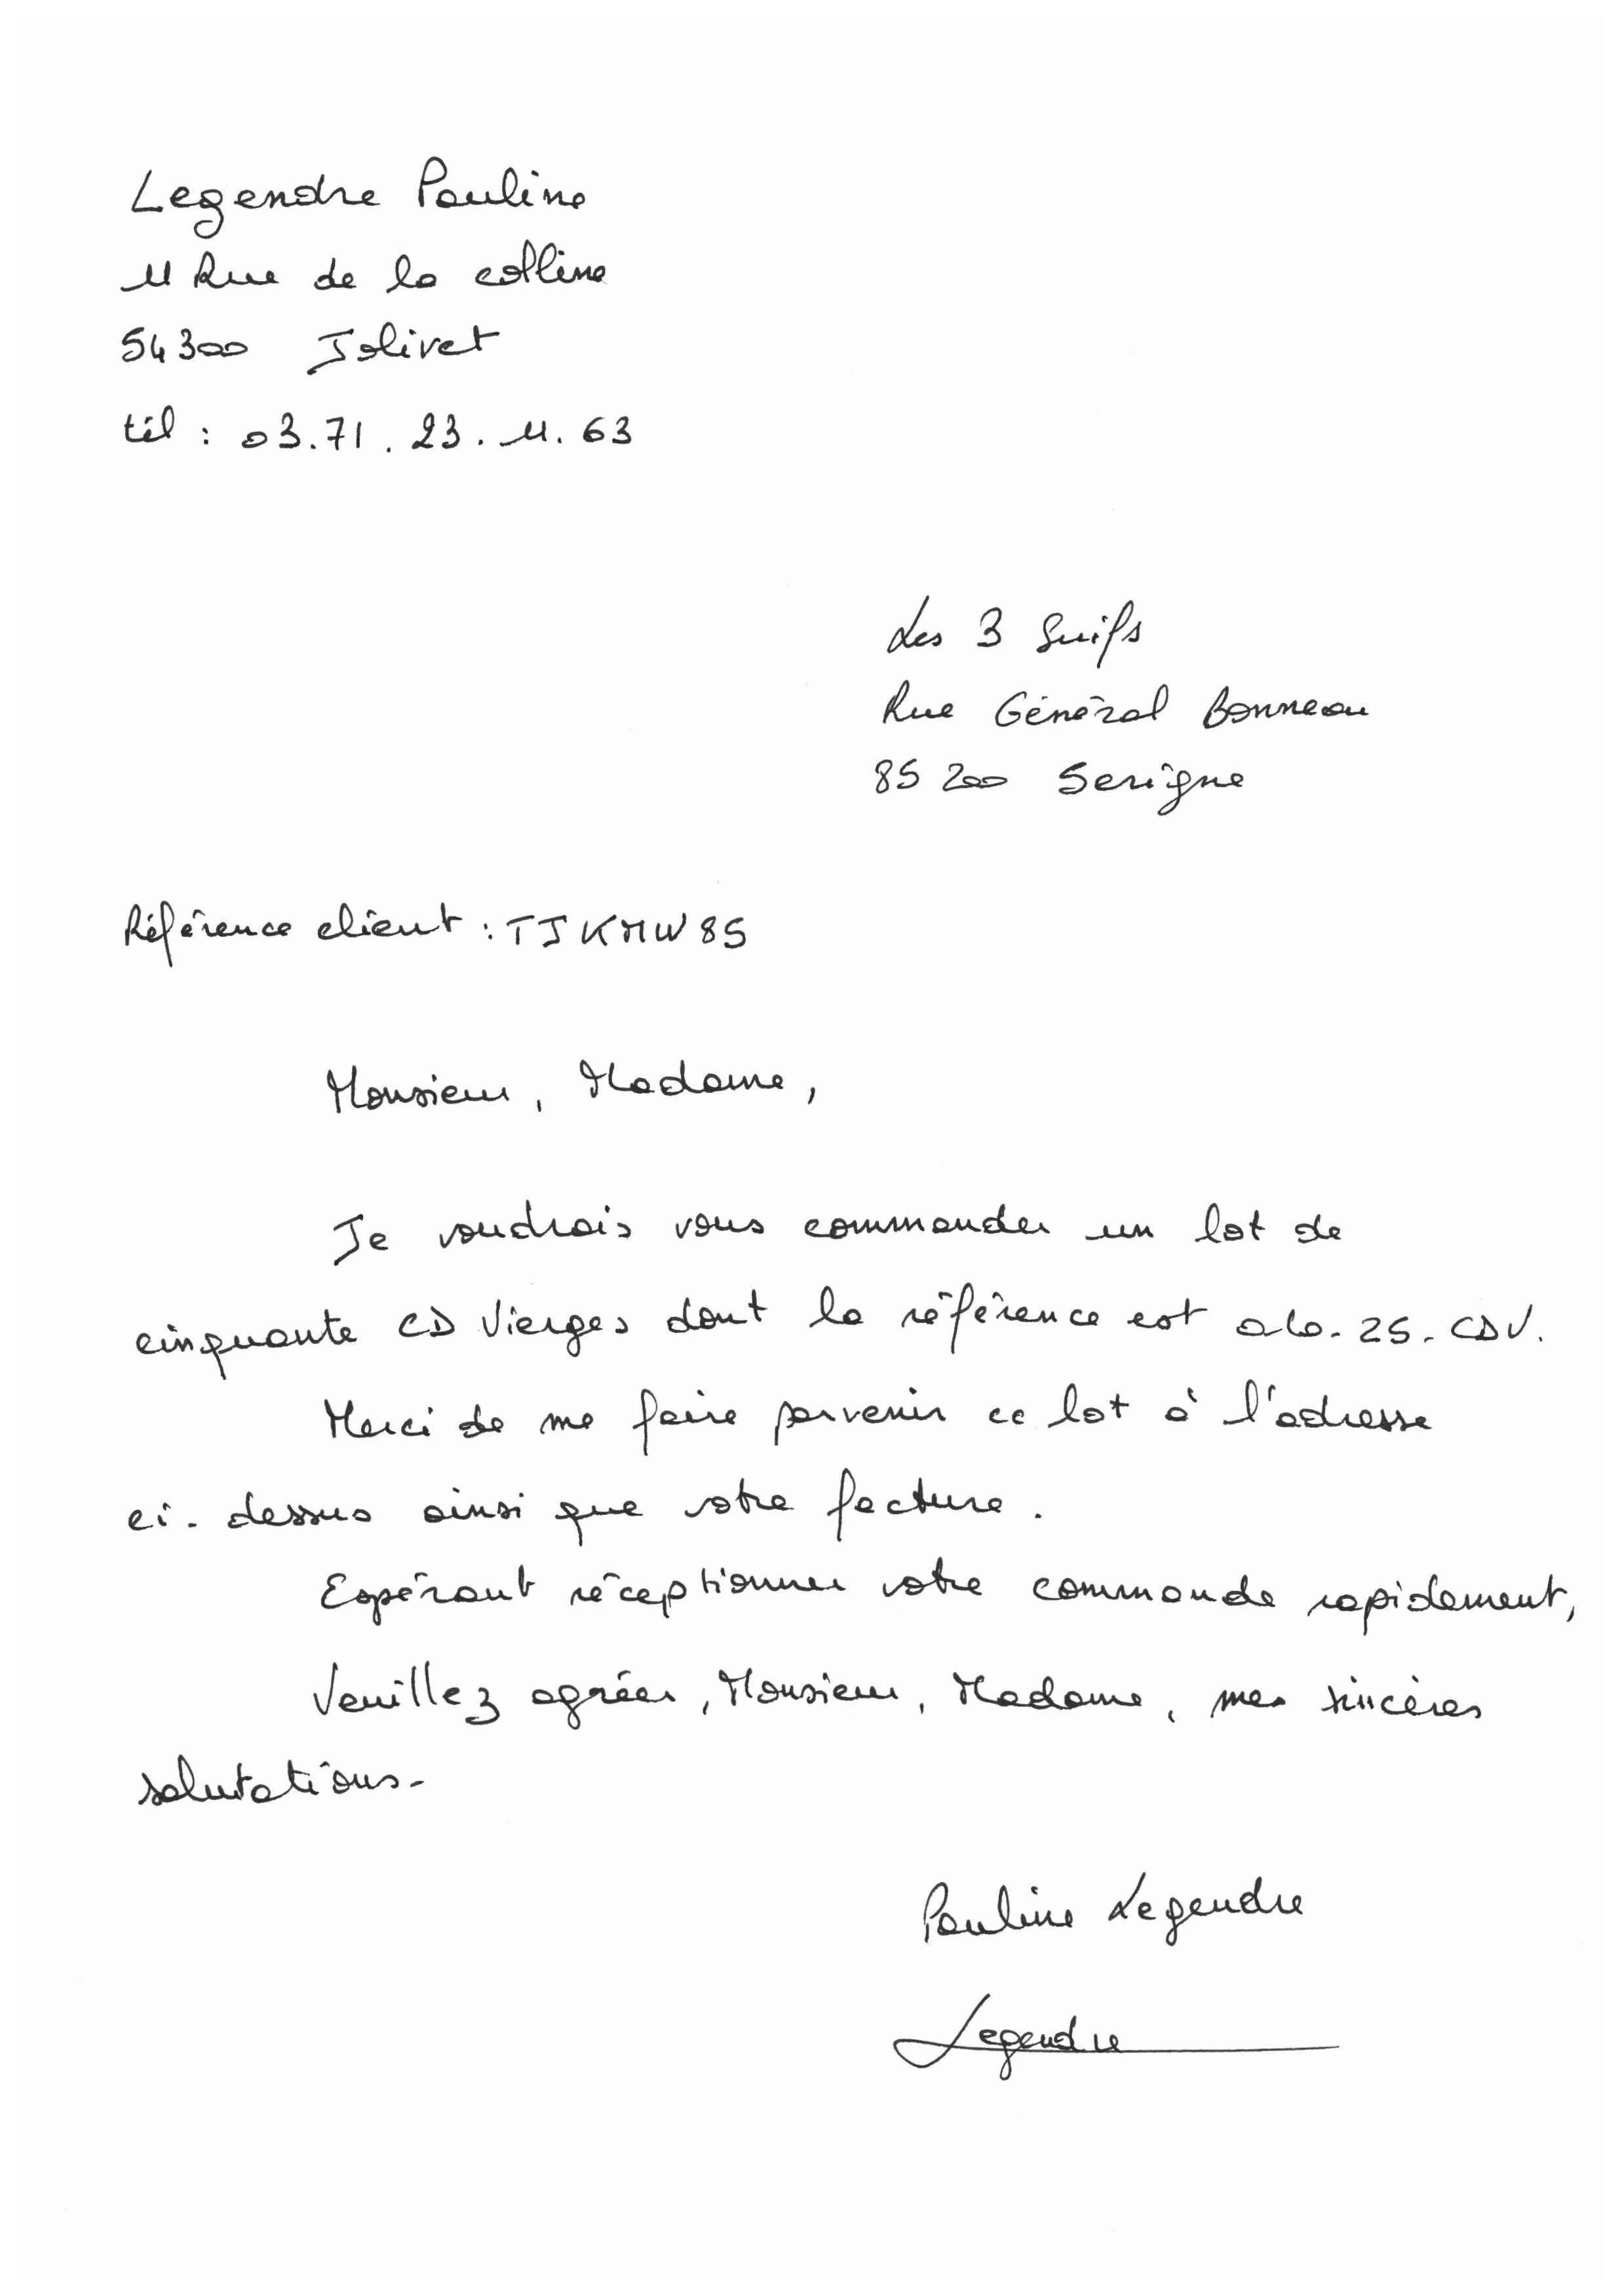 Legendre Pauline
11 Rue de la colline
54300 Jolivet
tél : 03.71.23.11.63
Les 3 Suifs
Rue Général Bonneau
85200 Serigne
Référence client : TJKMW85
Monsieur, Madame,
Je voudrais vous commander un lot de
cinquante CD Vierges dont la référence est -25-CDV.
Merci de me faire parvenir ce lot à l'adresse
ci-dessus ainsi que votre facture.
Espérant réceptionner votre commande rapidement,
Veuillez agréer, Monsieur, Madame, mes sincères
salutations.
Pauline Legendre
Legendre